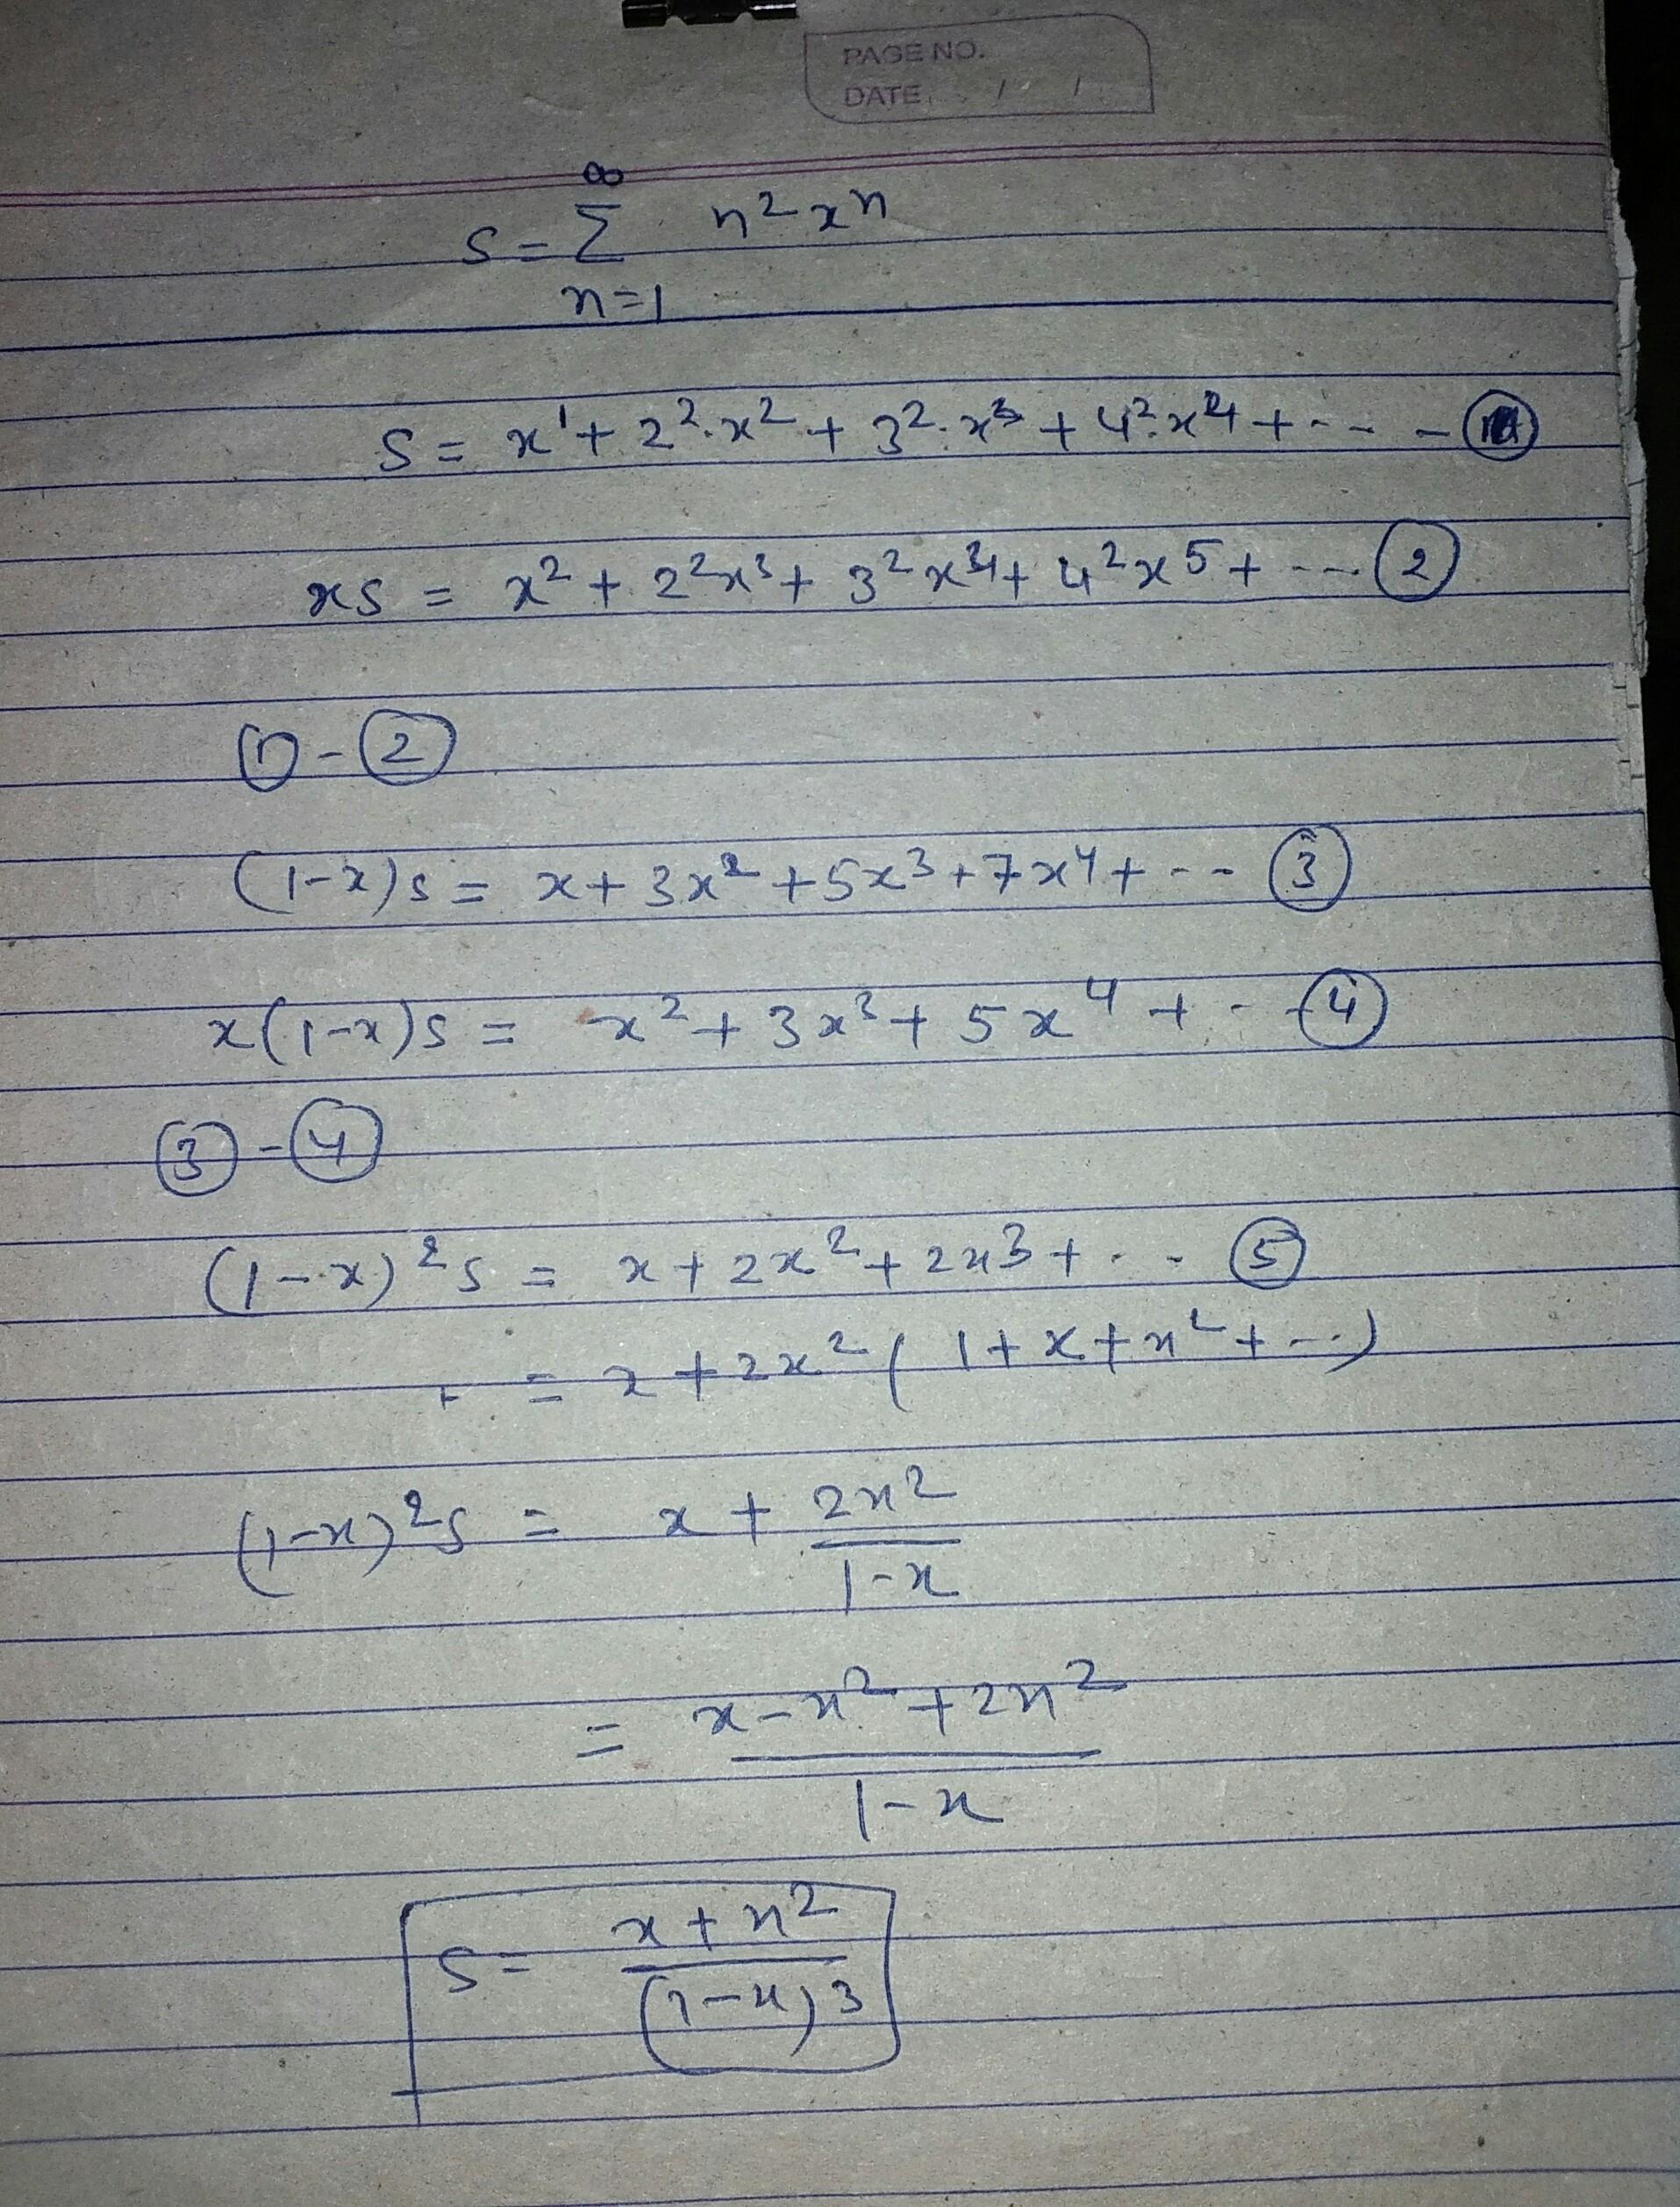 PAGE NO.
DATE. / /
∞
S = Σ n² xⁿ
n=1
S = x¹ + 2².x² + 3².x³ + 4².x⁴ + --- -
xs = x² + 2²x³ + 3²x⁴ + 4²x⁵ + --- ②
① - ②
(1-x)s = x + 3x² + 5x³ + 7x⁴ + -- ③
x(1-x)s = x² + 3x³ + 5x⁴ + - - ④
③ - ④
(1-x)²s = x + 2x² + 2x³ + .. - ⑤
= x + 2x² ( 1 + x + x² + --- )
(1-x)²s = x + 2x²
1-x
= x - x² + 2x²
1-x
S = x + x²
(1-x)3